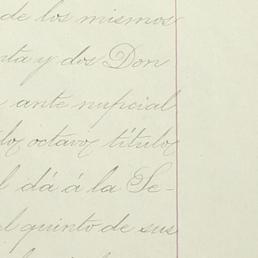 de los mismos
nta y dos Don
ante nupcial
los octavos títulos
l dá á la Se-
l quinto de sus